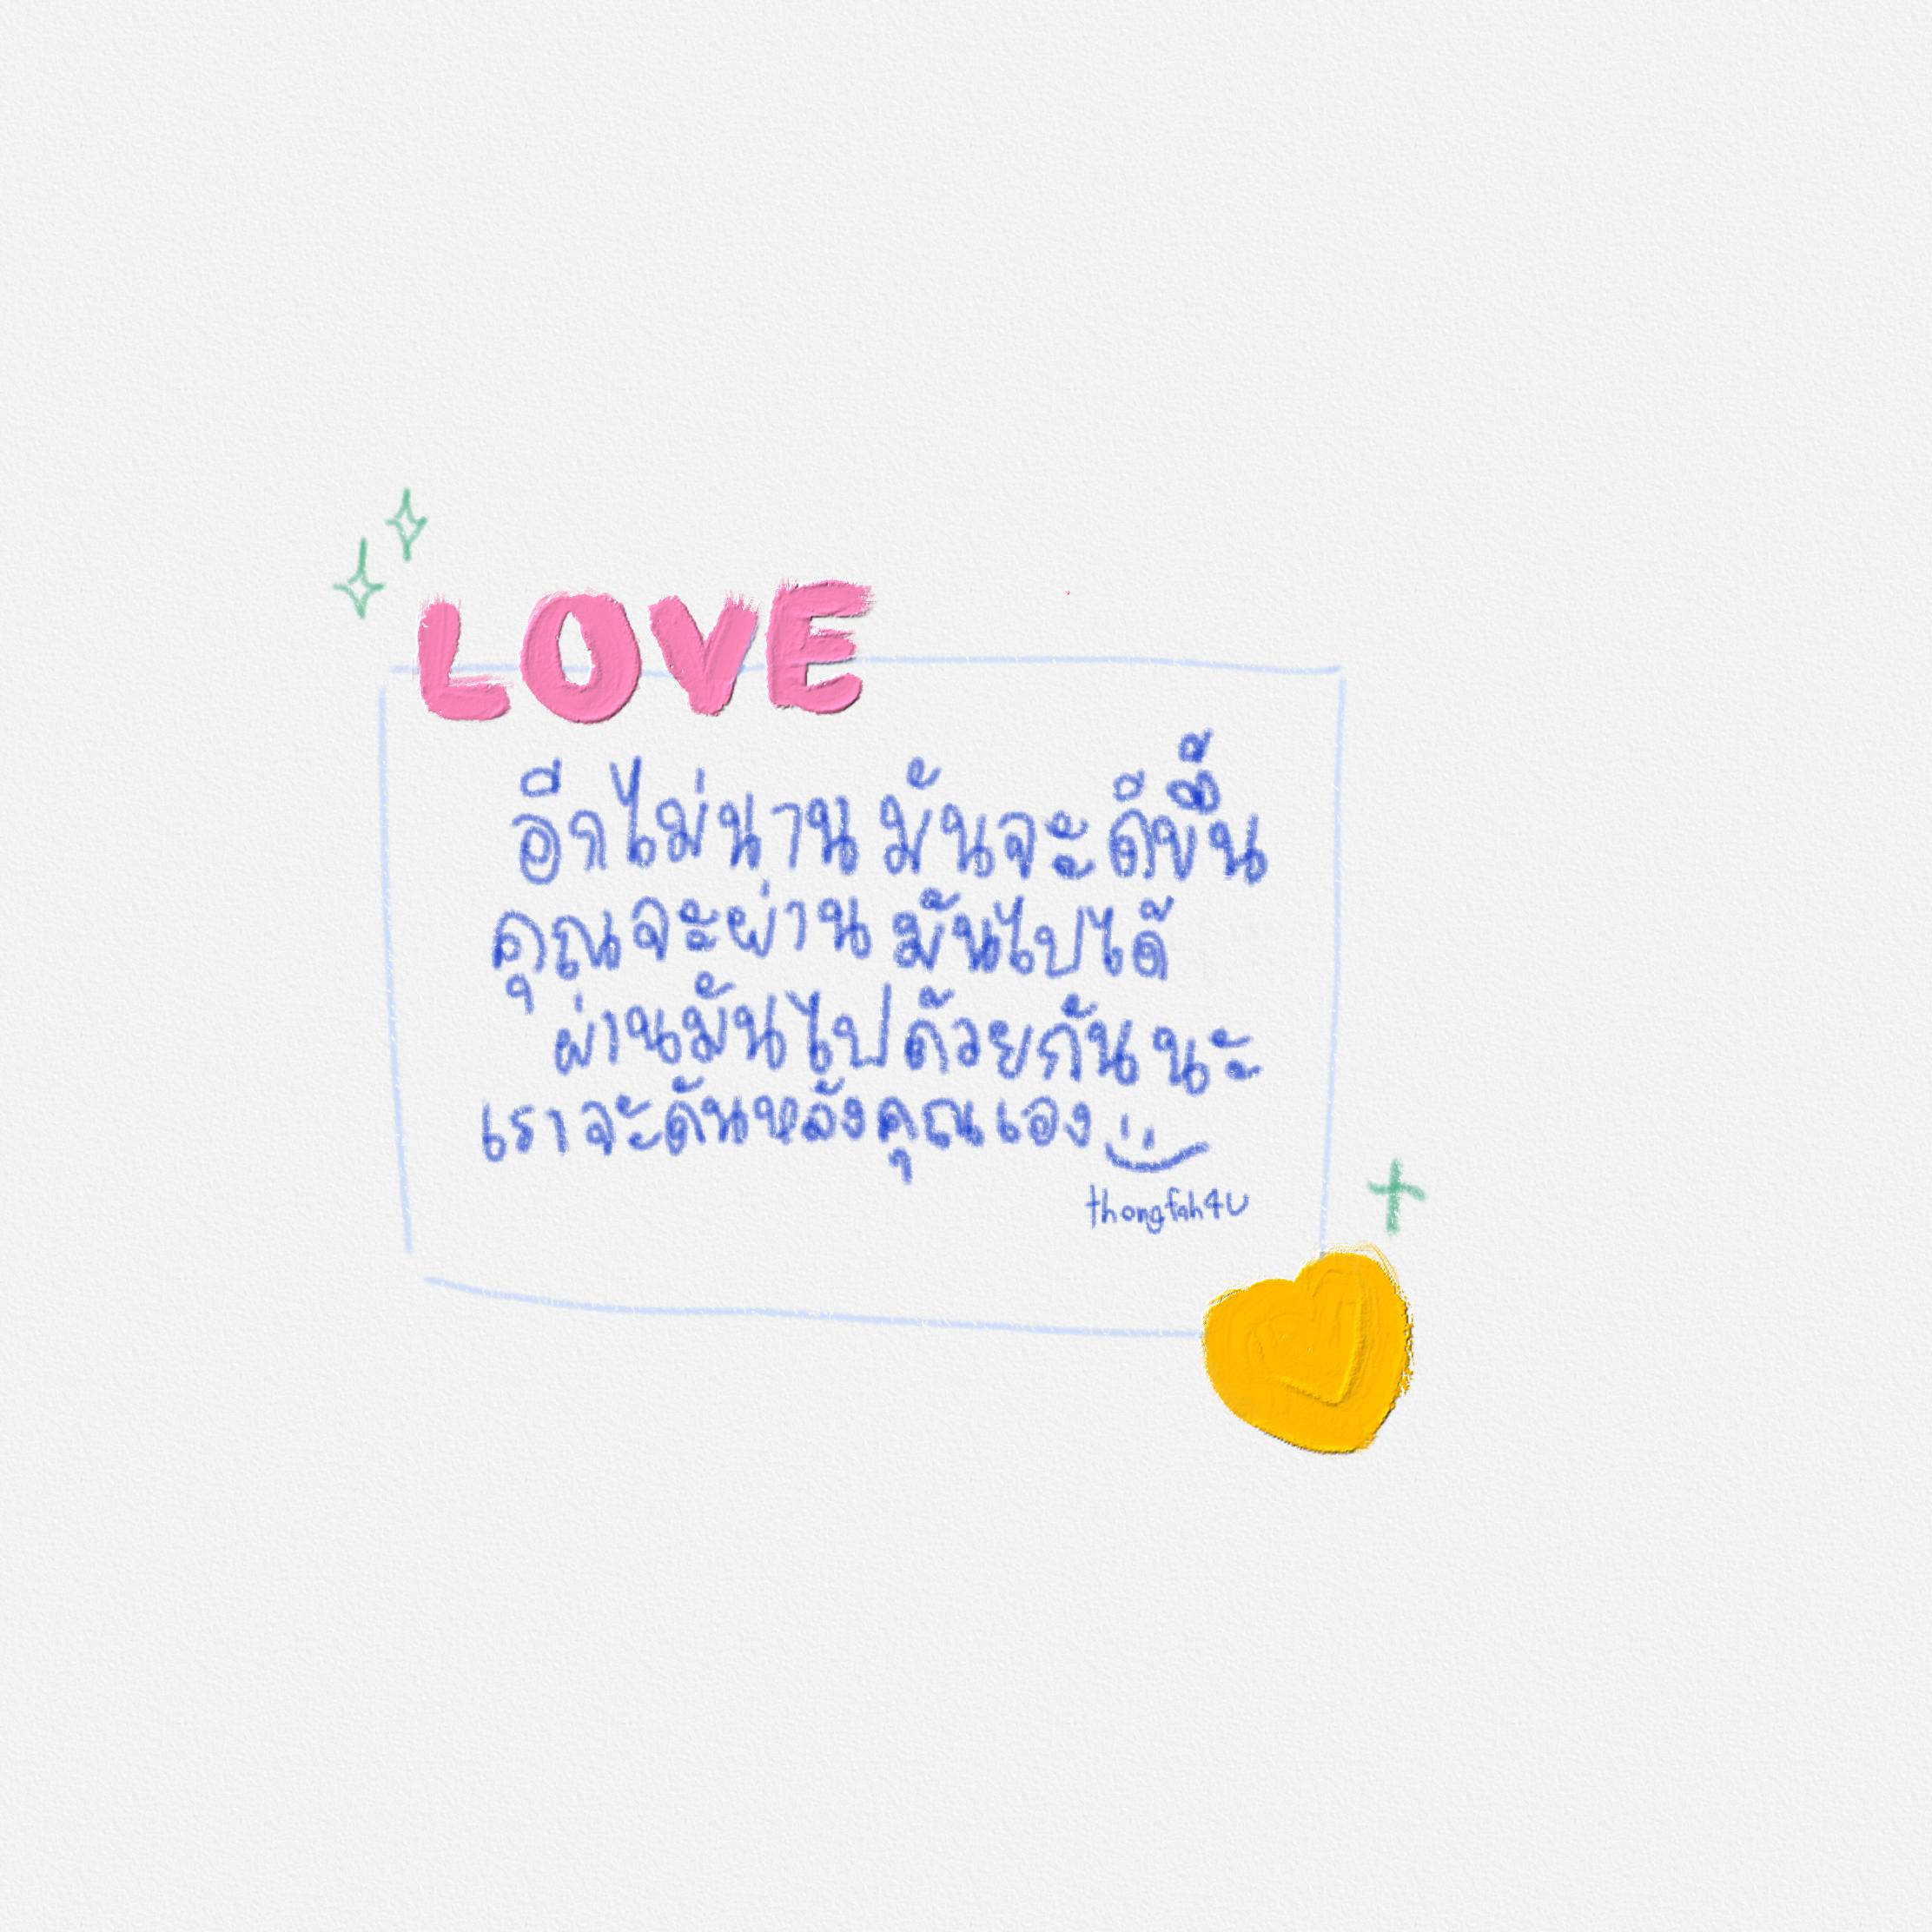 LOVE
อีกไม่นาน มันจะดีขึ้น
คุณจะผ่าน มันไปได้
ผ่านมันไปด้วยกัน นะ
เราจะดันหลังคุณเอง
thongfah4U